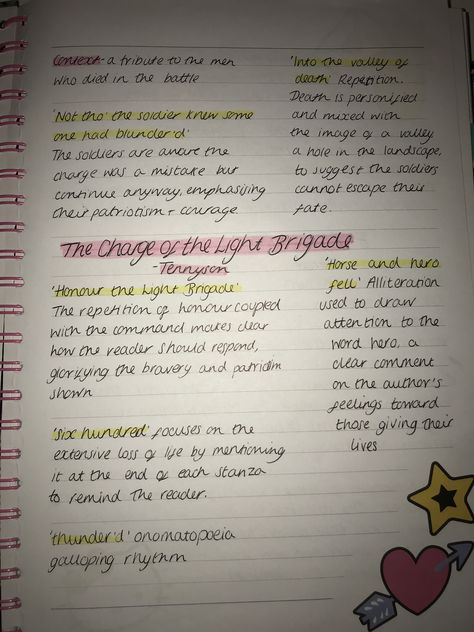 Context - a tribute to the men
who died in the battle
'Not tho' the soldier knew some
one had blunder'd'
The soldiers are aware the
charge was a mistake but
continue anyway, emphasising
their patriotism + courage.
'Into the valley of
death' Repetition.
Death is personified
and mixed with
the image of a valley
a hole in the landscape,
to suggest the soldiers
cannot escape their
fate.
The Charge of the Light Brigade
- Tennyson
'Honour the Light Brigade'
The repetition of honour coupled
with the command makes clear
how the reader should respond,
glorifying the bravery and patriotism
shown
'six hundred' focuses on the
extensive loss of life by mentioning
it at the end of each stanza
to remind the reader.
'thunder'd' onomatopoeia
galloping rhythm
'Horse and hero
fell' Alliteration
used to draw
attention to the
word hero, a
clear comment
on the author's
feelings toward
those giving their
lives